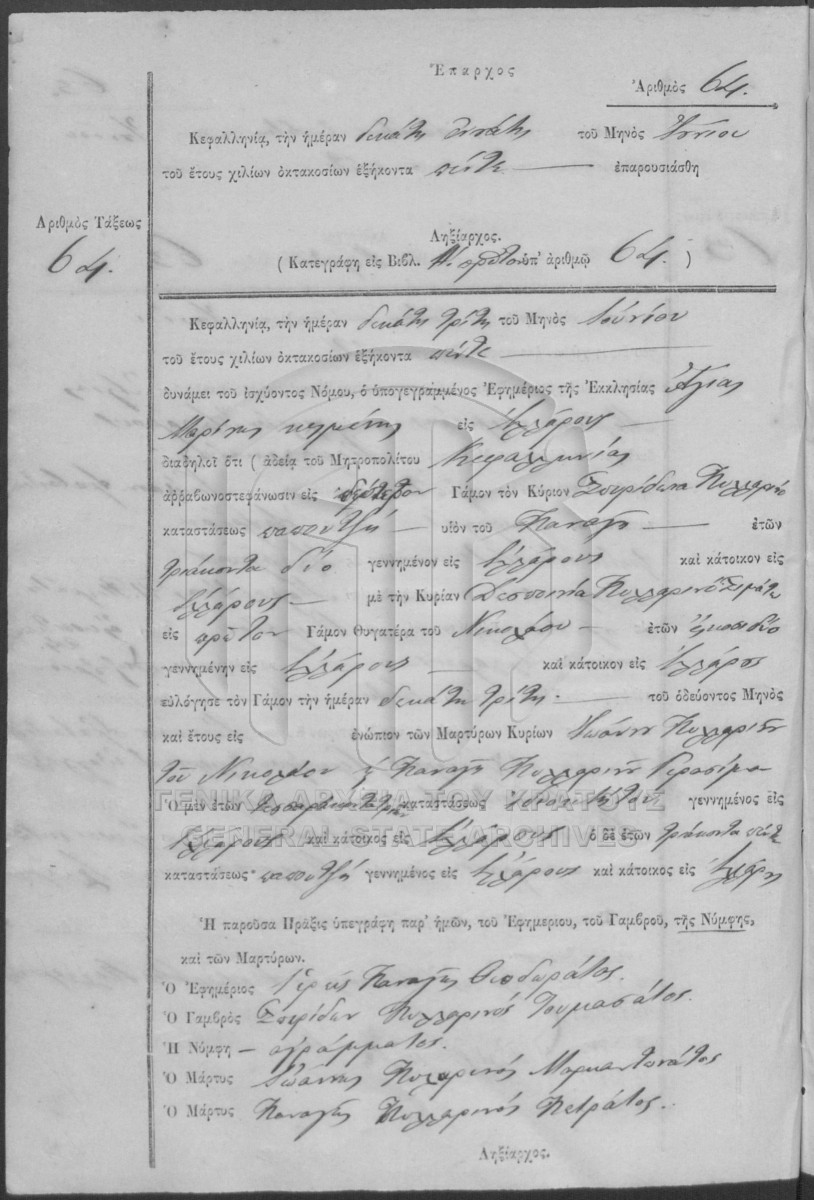 Ἔπαρχος
Ἀριθμὸς 64.
Κεφαλληνίᾳ, τὴν ἡμέραν δεκάτη ἐννάτη τοῦ Μηνὸς Ἰουνίου
τοῦ ἔτους χιλίων ὀκτακοσίων ἑξήκοντα πέντε — ἐπαρουσιάσθη
Ἀριθμὸς Τάξεως
64.
Ληξίαρχος.
( Κατεγράφη εἰς Βιβλ. πρῶτον ὑπ' ἀριθμῷ 64. )
Κεφαλληνίᾳ, τὴν ἡμέραν δεκάτη τρίτη τοῦ Μηνὸς Ἰουνίου
τοῦ ἔτους χιλίων ὀκτακοσίων ἑξήκοντα πέντε —
δυνάμει τοῦ ἰσχύοντος Νόμου, ὁ ὑπογεγραμμένος Ἐφημέριος τῆς Ἐκκλησίας Ἁγίας
Μαρίνης κειμένης εἰς Ἐλλάρους —
διαδηλοῖ ὅτι ( ἀδείᾳ τοῦ Μητροπολίτου Κεφαλληνίας
ἀῤῥαβωνοστεφάνωσιν εἰς δεύτερον Γάμον τὸν Κύριον Σπυρίδωνα Πυλλαρινὸ
καταστάσεως παπουτζῆ — υἱὸν τοῦ Παναγῆ — ἐτῶν
τριάκοντα δύο γεννημένον εἰς Ἐλλάρους καὶ κάτοικον εἰς
Ἐλλάρους — μὲ τὴν Κυρίαν Δεσποινία Πυλλαρινοῦ
εἰς πρῶτον Γάμον Θυγατέρα τοῦ Νικολάου — ἐτῶν εἰκοσιδύο
γεννημένην εἰς Ἐλλάρους — καὶ κάτοικον εἰς Ἐλλάρος
εὐλόγησε τὸν Γάμον τὴν ἡμέραν δεκάτη τρίτη. — τοῦ ὁδεύοντος Μηνὸς
καὶ ἔτους εἰς ἐνώπιον τῶν Μαρτύρων Κυρίων Ἰωάννη Πυλλαρινοῦ
τοῦ Νικολάου καὶ Παναγῆ Πυλλαρινοῦ Γερασίμου
Ὁ μὲν ἐτῶν καταστάσεως γεννημένος εἰς
Ἐλλάρους καὶ κάτοικος εἰς Ἐλλάρους ὁ δὲ ἐτῶν τριάκοντα πέντε
καταστάσεως παπουτζῆ γεννημένος εἰς Ἐλλάρους καὶ κάτοικος εἰς Ἐλλάρους
ΓΕΝΙΚΑ ΑΡΧΕΙΑ ΤΟΥ ΚΡΑΤΟΥΣ
GENERAL STATE ARCHIVES
Ἡ παροῦσα Πρᾶξις ὑπεγράφη παρ' ἡμῶν, τοῦ Ἐφημερίου, τοῦ Γαμβροῦ, τῆς Νύμφης,
καὶ τῶν Μαρτύρων.
Ὁ Ἐφημέριος Ἱερεὺς Παναγῆς Θεοδωράτος.
Ὁ Γαμβρὸς Σπυρίδων Πυλλαρινός Τουμασάτος.
Ἡ Νύμφη — ἀγράμματος.
Ὁ Μάρτυς Ἰωάννης Πυλαρινός Μαρκαντωνάτος
Ὁ Μάρτυς Παναγῆς Πυλλαρινός Πετράτος.
Ληξίαρχος.